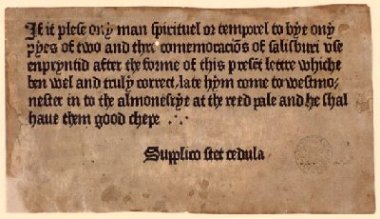 If it plese ony man spirituel or temporel to bye ony
pyes of two and thre comemoraciōs of salisburi vse
enpryntid after the forme of this presēt lettre whiche
ben wel and truly correct, late hym come to westmo-
nester in to the almonesrye at the reed pale and he shal
haue them good chepe ∴
Supplico stet cedula